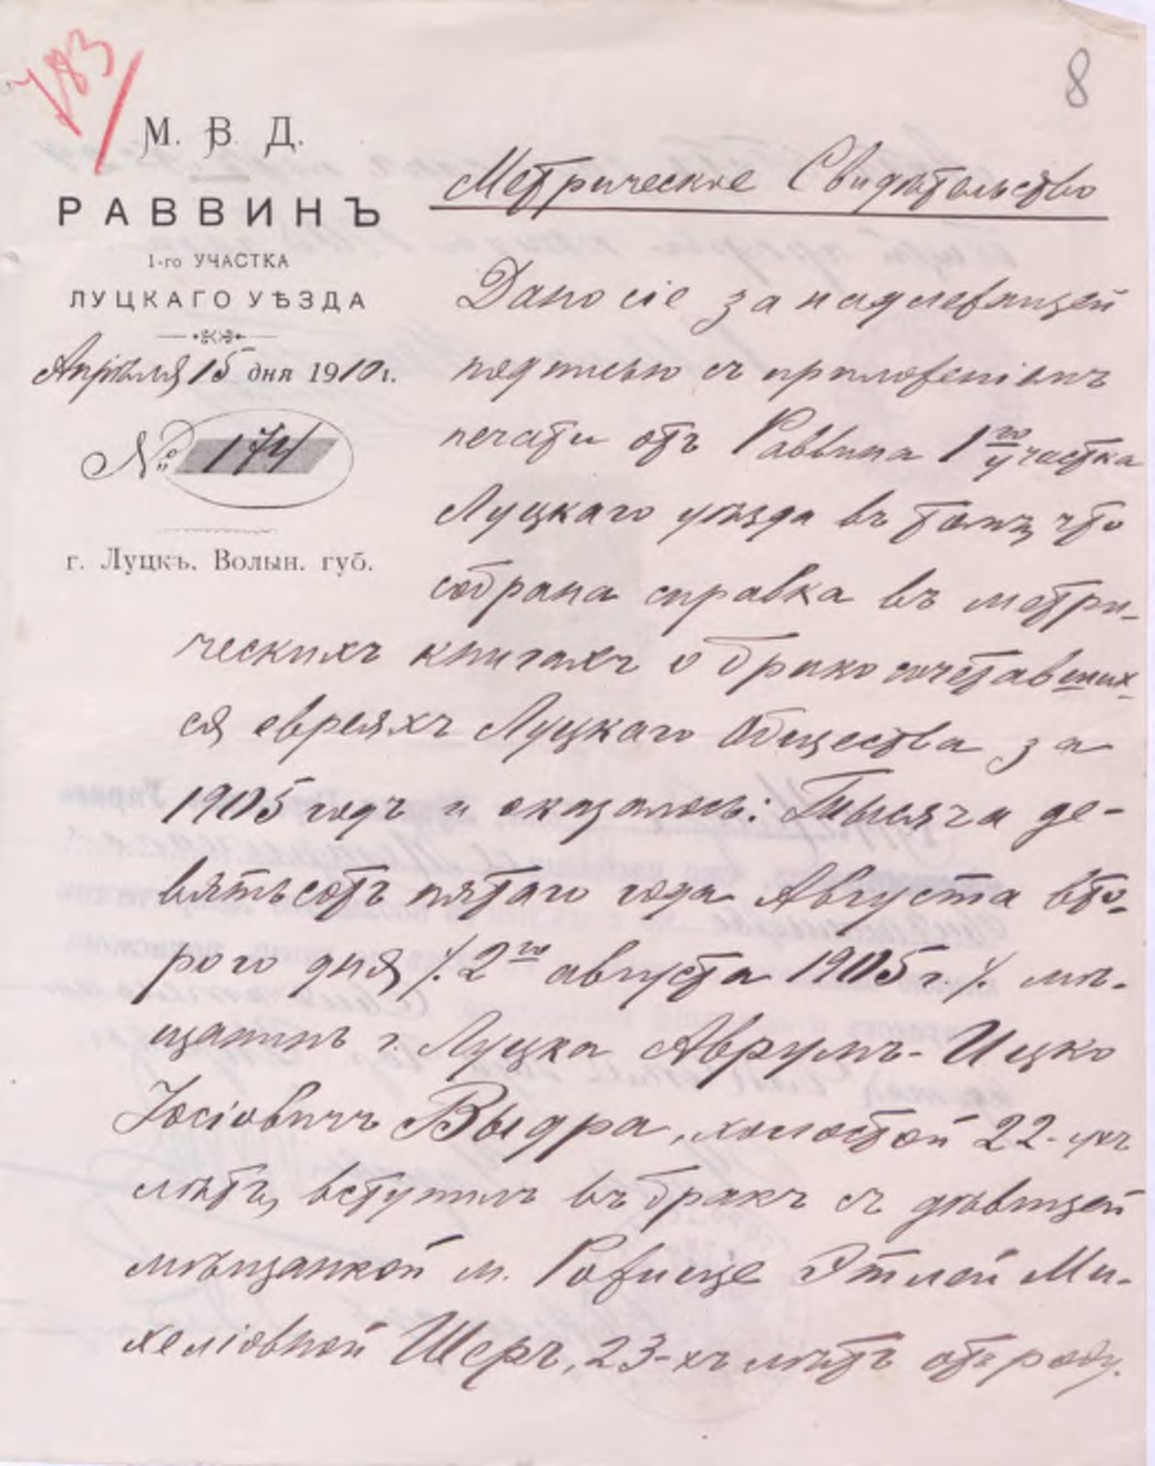 183
8
М. В. Д.
РАВВИНЪ
1-го УЧАСТКА
ЛУЦКАГО УѢЗДА
Апрѣля 15 дня 1910 г.
№ 174
г. Луцкъ, Волын. губ.
Метрическое Свидѣтельство
Дано сіе за надлежащей
подписью съ приложеніемъ
печати отъ Раввина 1го участка
Луцкаго уѣзда въ томъ, что
собрана справка въ метри-
ческихъ книгахъ о бракосочетавших-
ся евреяхъ Луцкаго Общества за
1905 годъ и оказалось: Тысяча де-
вятьсотъ пятаго года Августа вто-
рого дня /. 2го августа 1905 г. /. мѣ-
щанинъ г. Луцка Аврумъ-Ицко
Іосіовичъ Выдра, холостой 22-ухъ
лѣтъ, вступилъ въ бракъ съ дѣвицей
мѣщанкой м. Рожище Этлей Ми-
хеліовной Шеръ, 23-хъ лѣтъ отъ роду.